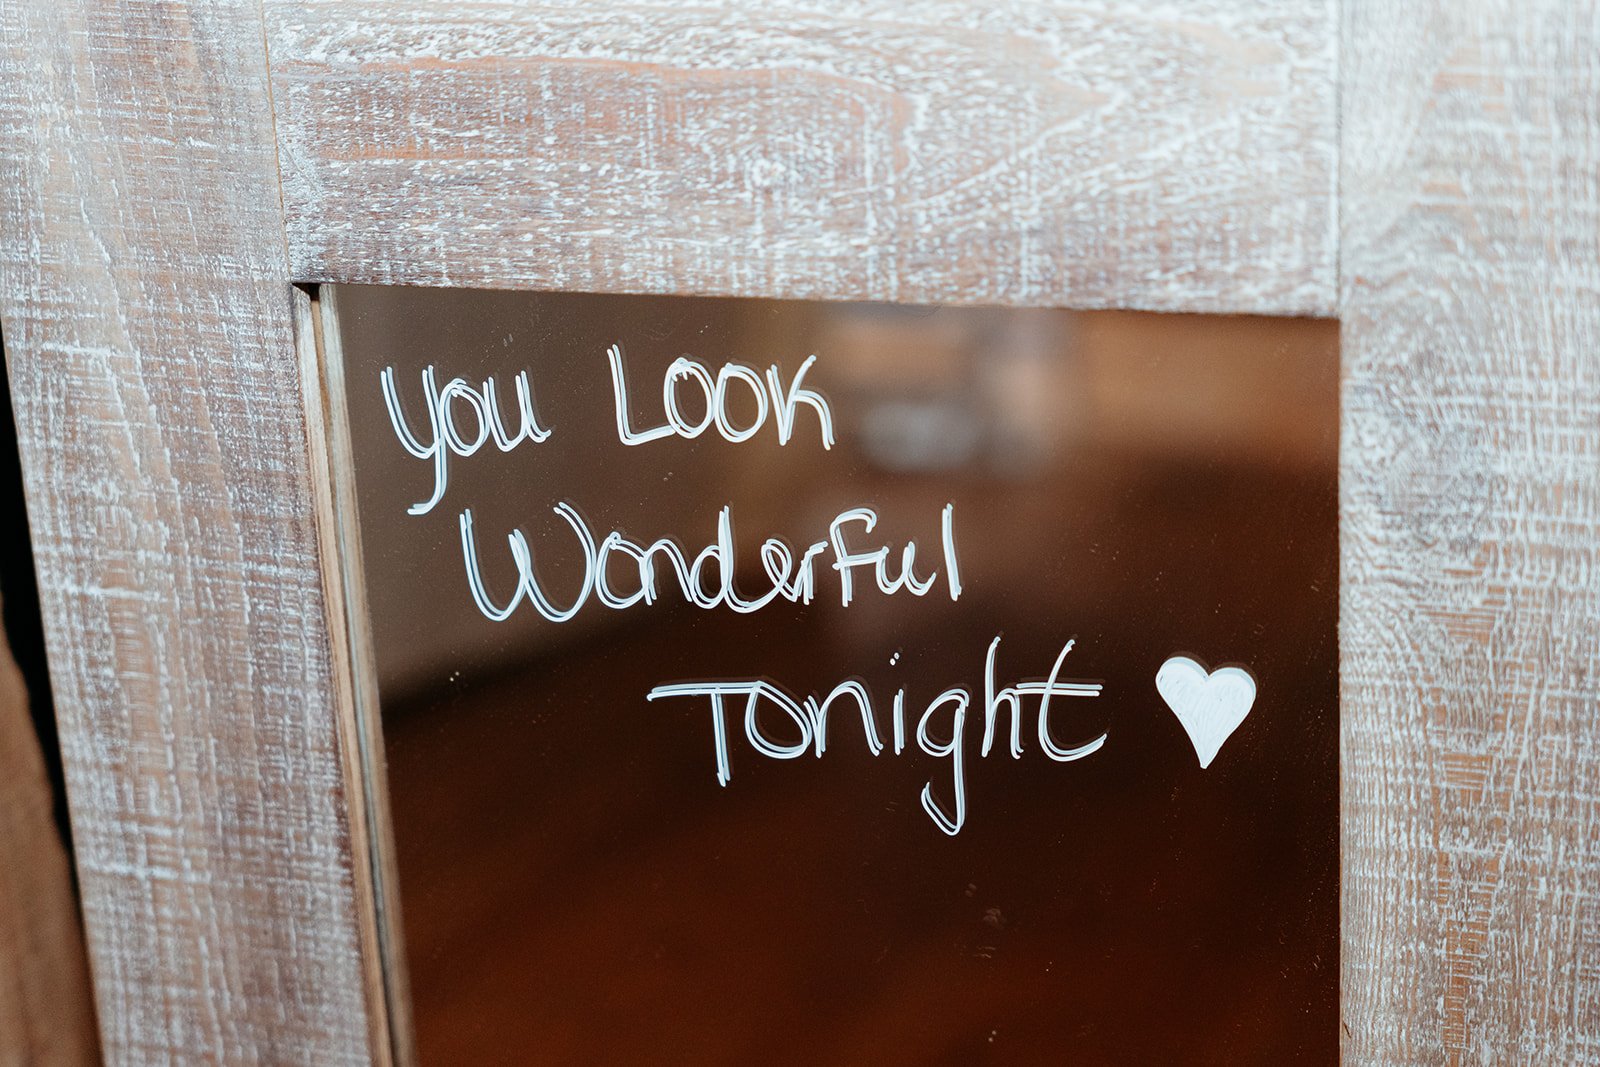 You Look
Wonderful
Tonight ♥